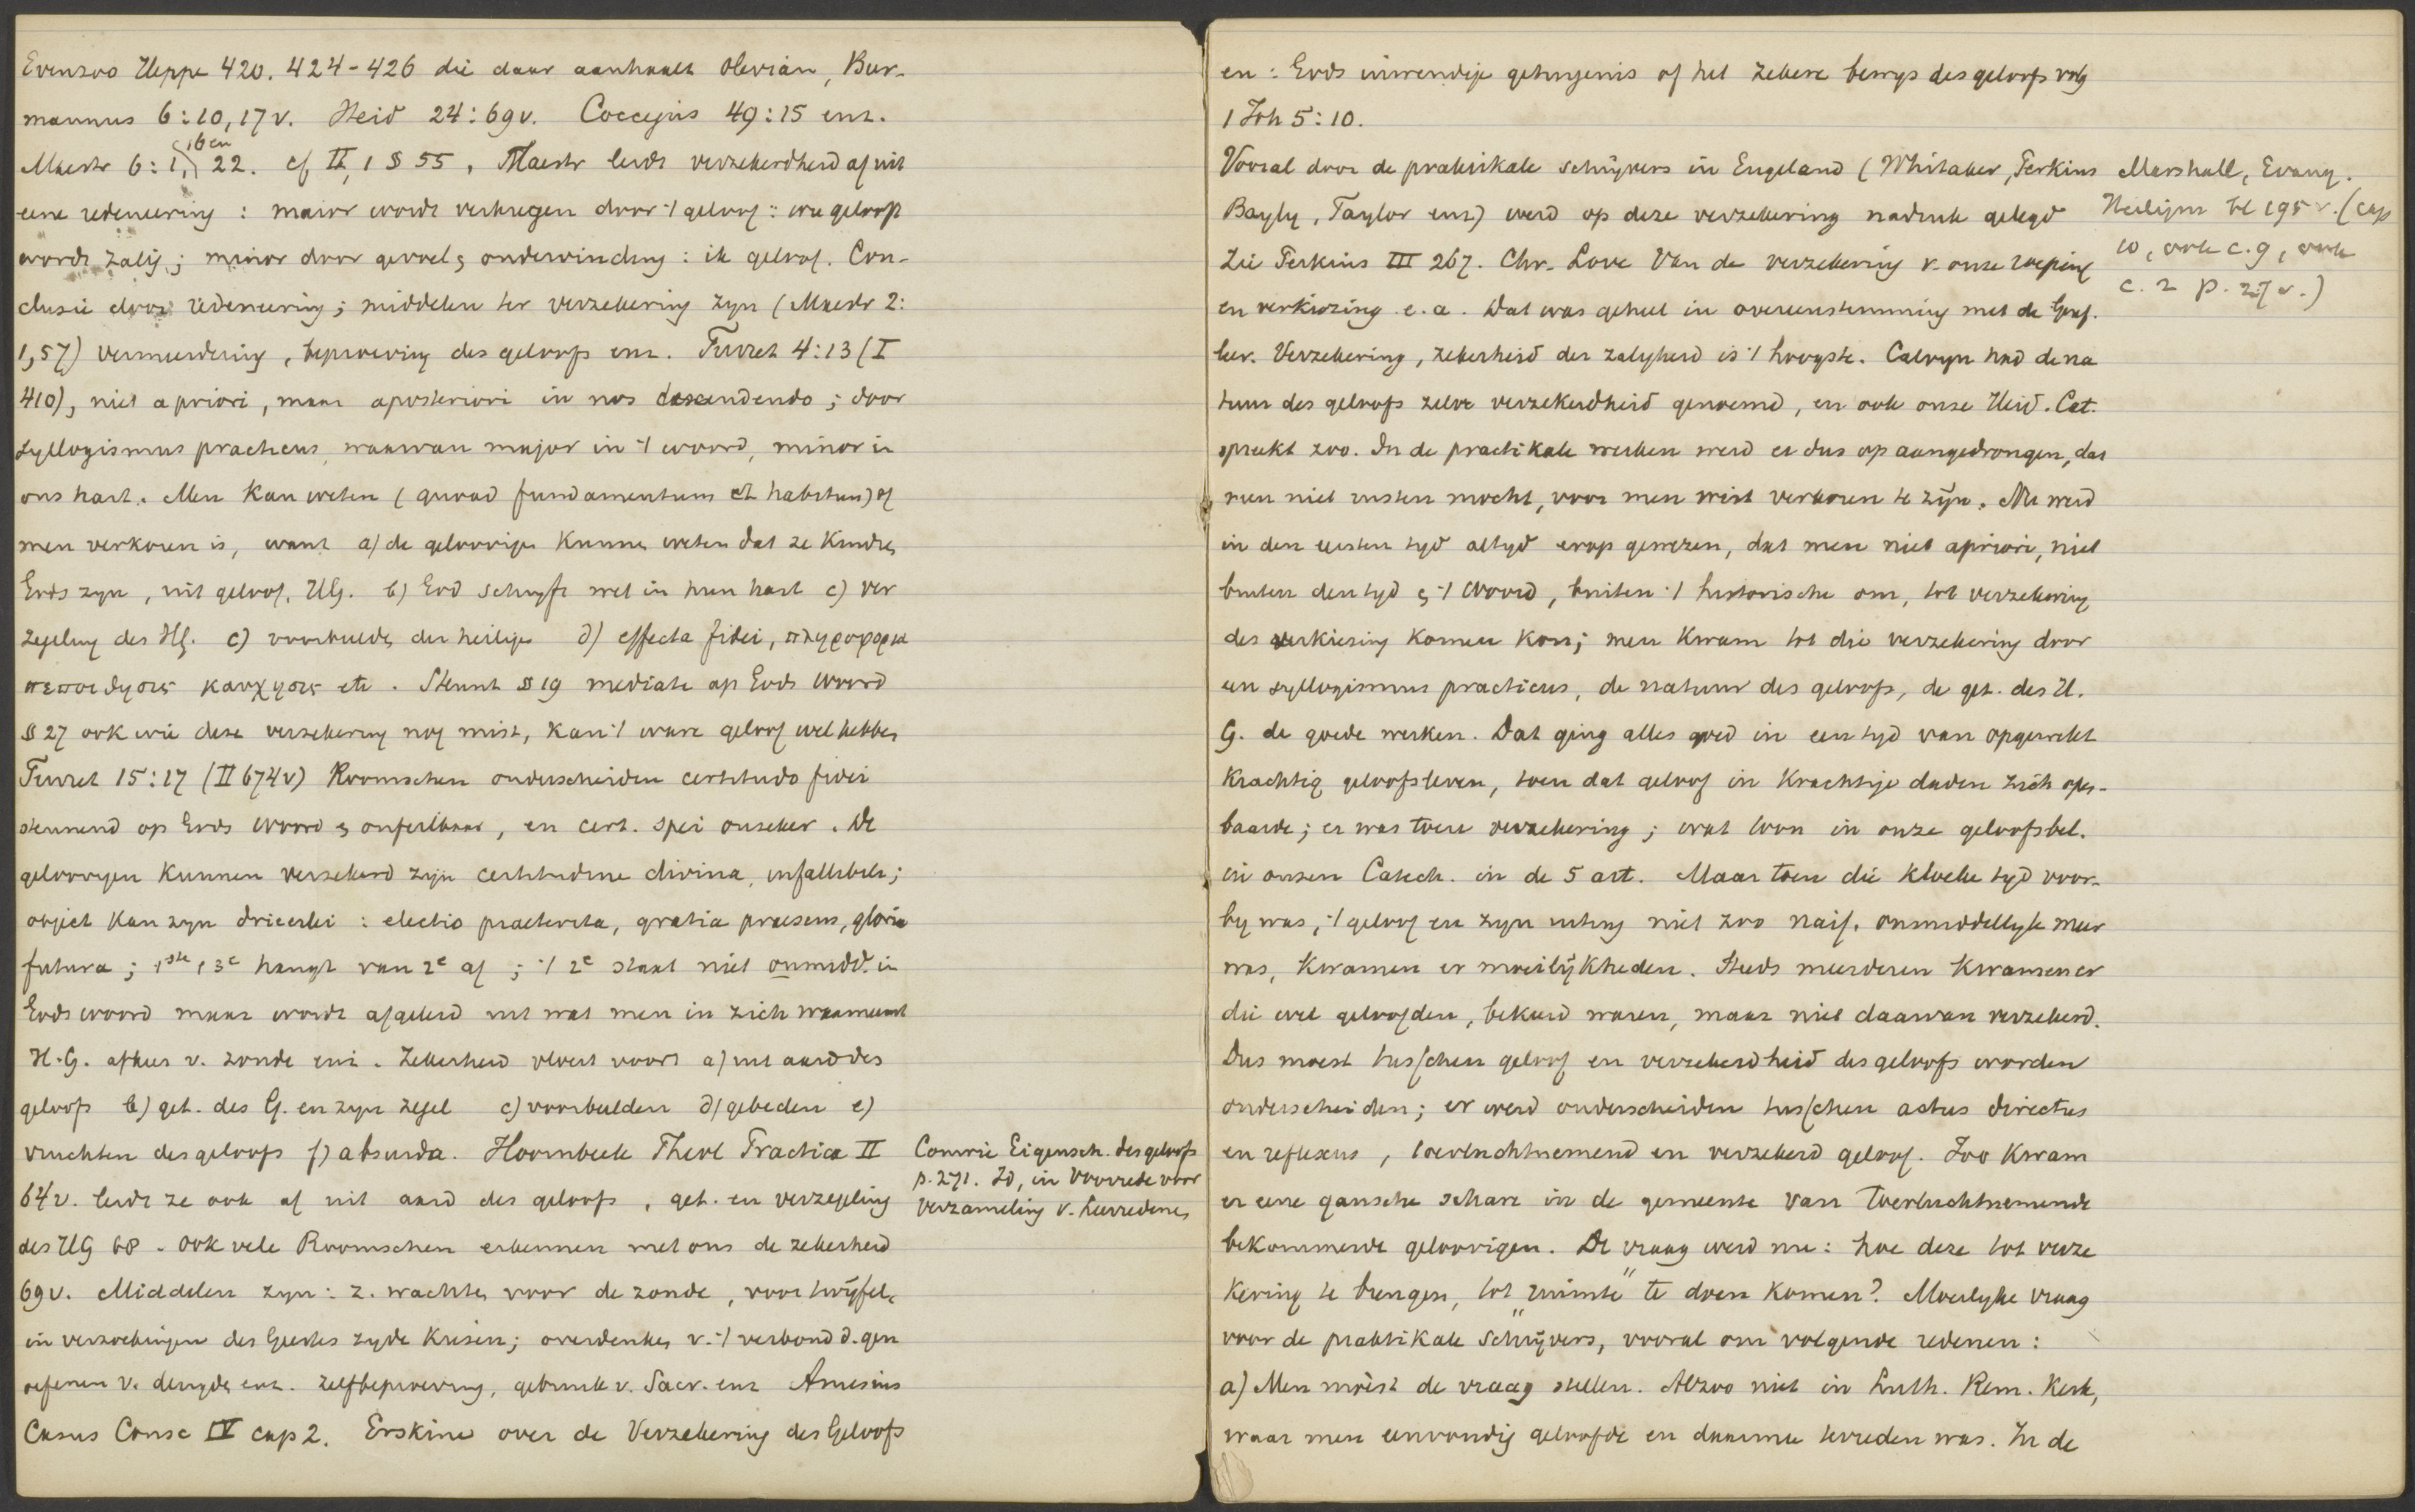 Evenzoo Heppe 420. 424-426 die daar aanhaalt Olevian, Bur-
mannus 6:10,17v. Heid 24:69v. Coccejus 49:15 enz.
Maestr 6:1, 16 en 22. cf II, 1 § 55, Maestr leidt verzekerdheid af uit
eene redeneering: maior wordt verkregen door 't geloof: wie gelooft
wordt zalig; minor door gevoel & ondervinding: ik geloof. Con-
clusie door redeneering; middelen ter verzekering zijn (Maestr 2:
1,57) vermeerdering, beproeving des geloofs enz. Turret 4:13 (I
410), niet a priori, maar aposteriori in nos descendendo; door
syllogismus practicus, waarvan major in 't woord, minor in
ons hart. Men kan weten (quoad fundamentum et habitum) of
men verkoren is, want a) de geloovigen kunnen weten dat ze kinderen
Gods zijn, uit geloof, HG. b) God schrijft wet in hun hart c) ver
zegeling des HG. c) voorbeelden der heiligen d) effecta fidei, πληροφορια
πεποιθησις καυχησις etc. Steunt § 19 mediate op Gods woord
§ 27 ook wie deze verzekering nog mist, kan 't ware geloof wel hebben
Turret 15:17 (II 674v) Roomschen onderscheiden certitudo fidei
steunend op Gods woord & onfeilbaar, en cert. spei onzeker. De
geloovigen kunnen verzekerd zijn certitudine divina, infallibili;
object kan zijn drieerlei: electio praeterita, gratia praesens, gloria
futura; 1ste, 3e hangt van 2e af; 't 2e staat niet onmidd. in
Gods woord maar wordt afgeleid uit wat men in zich waarneemt
H.G. afkeer v. zonde enz. Zekerheid vloeit voort a) uit aard des
geloofs b) get. des G. en zijn zegel c) voorbeelden d) gebeden e)
vruchten des geloofs f) absurda. Hoornbeek Theol Practica II
64v. leidt ze ook af uit aard des geloofs, get. en verzegeling
des HG 68. Ook vele Roomschen erkennen met ons de zekerheid
69v. Middelen zijn: z. wachten voor de zonde, voor twijfel,
in verzoekingen des Geestes zijde kiezen; overdenken v. 't verbond d. gen
oefenen v. deugden enz. zelfbeproeving, gebruik v. Sacr. enz Amesius
Casus Consc IV cap 2. Erskine over de Verzekering des Geloofs
Comrie Eigensch. des geloofs
p. 271. Id, in Voorrede voor
verzameling v. Leerredenen
en: Gods inwendige getuigenis of het zekere bewijs des geloofs volg
1 Joh 5:10.
Vooral door de praktikale schrijvers in Engeland (Whitaker, Perkins
Bayly, Taylor enz) werd op deze verzekering nadruk gelegd
Zie Perkins III 267. Chr. Love Van de verzekering v. onze roeping
en verkiezing e.a. Dat was geheel in overeenstemming met de Geref.
leer. Verzekering, zekerheid der zaligheid is 't hoogste. Calvyn had de na
tuur des geloofs zelve verzekerdheid genoemd, en ook onze Heid. Cat.
spreekt zoo. In de practikale werken werd er dus op aangedrongen, dat
men niet rusten mocht, voor men wist verkoren te zijn. Nu werd
in den eersten tijd altijd erop gewezen, dat men niet apriori, niet
buiten den tijd & 't Woord, buiten 't historische om, tot verzekering
des verkiezing komen kon; men kwam tot die verzekering door
een syllogismus practicus, de natuur des geloofs, de get. des H.
G. de goede werken. Dat ging alles goed in een tijd van opgewekt
krachtig geloofsleven, toen dat geloof in krachtige daden zich open-
baarde; er was toen verzekering; wat toon in onze geloofsbel.
in onzen Catech. in de 5 art. Maar toen die kloeke tijd voor-
bij was, 't geloof en zijn uiting niet zoo naif, onmiddellijk meer
was, kwamen er moeilijkheden. Steeds meerderen kwamen er
die wel geloofden, bekeerd waren, maar niet daarvan verzekerd.
Dus moest tusschen geloof en verzekerdheid des geloofs worden
onderscheiden; er werd onderscheiden tusschen actus directus
en reflexus, toevluchtnemend en verzekerd geloof. Zoo kwam
er eene gansche schare in de gemeente van toevluchtnemende
bekommerde geloovigen. De vraag werd nu: hoe deze tot verze
kering te brengen, tot "ruimte" te doen komen? Moeilijke vraag
voor de praktikale schrijvers, vooral om volgende redenen:
a) Men moèst de vraag stellen. Alzoo niet in Luth. Rem. Kerk,
waar men eenvoudig geloofde en daarmee tevreden was. In de
Marshall, Evang.
Heiligm bl 195 v. (cap
10, ook c. 9, ook
c. 2 p. 27 v.)